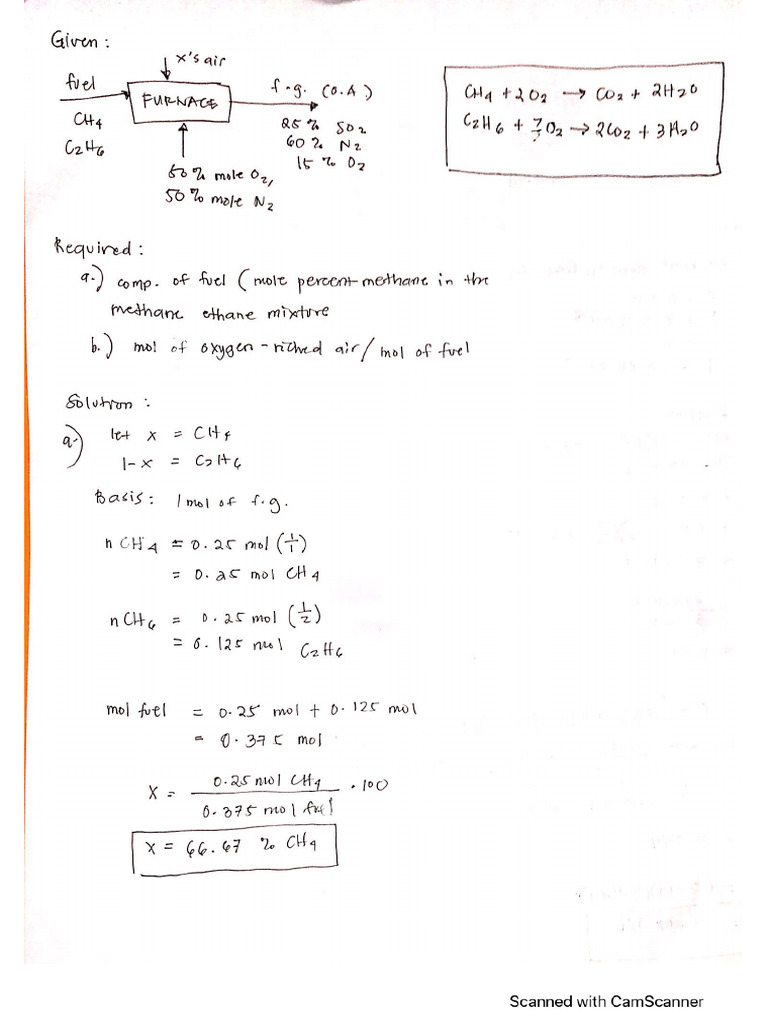 Given :
x's air
fuel
FURNACE
f.g. (O.A)
CH4
C2H6
25 % SO2
60 % N2
15 % O2
50 % mole O2,
50 % mole N2
CH4 + 2O2 → CO2 + 2H2O
C2H6 + 7/2 O2 → 2CO2 + 3H2O
Required :
a.) comp. of fuel (mole percent methane in the
methane ethane mixture
b.) mol of oxygen-riched air / mol of fuel
Solution :
a.) let x = CH4
1-x = C2H6
Basis : 1 mol of f.g.
n CH4 = 0.25 mol (1/1)
= 0.25 mol CH4
n CH6 = 0.25 mol (1/2)
= 0.125 mol C2H6
mol fuel = 0.25 mol + 0.125 mol
= 0.375 mol
x = 0.25 mol CH4 / 0.375 mol fuel . 100
x = 66.67 % CH4
Scanned with CamScanner